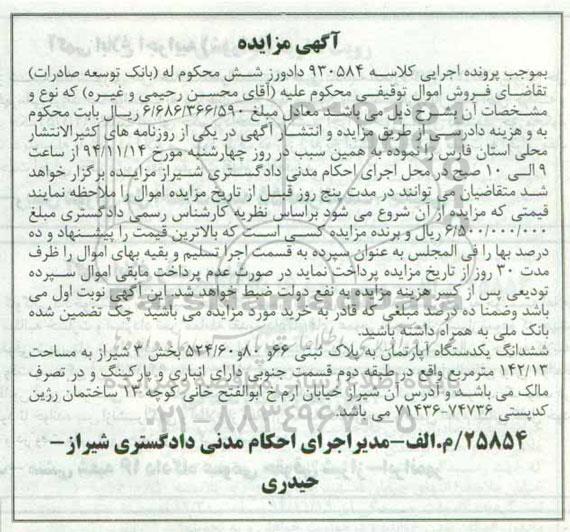 آگهی مزایده
بموجب پرونده اجرایی کلاسه ۹۳۰۵۸۴ دادورز شش محکوم له (بانک توسعه صادرات)
تقاضای فروش اموال توقیفی محکوم علیه (آقای محسن رحیمی و غیره) که نوع و
مشخصات آن بشرح ذیل می باشد معادل مبلغ ۶/۶۸۶/۳۶۶/۵۹۰ ریال بابت محکوم
به و هزینه دادرسی از طریق مزایده و انتشار آگهی در یکی از روزنامه های کثیرالانتشار
محلی استان فارس را نموده به همین سبب در روز چهارشنبه مورخ ۹۴/۱۱/۱۴ از ساعت
۹ الی ۱۰ صبح در محل اجرای احکام مدنی دادگستری شیراز مزایده برگزار خواهد
شد متقاضیان می توانند در مدت پنج روز قبل از تاریخ مزایده اموال را ملاحظه نمایند
قیمتی که مزایده از آن شروع می شود براساس نظریه کارشناس رسمی دادگستری مبلغ
۶/۵۰۰/۰۰۰/۰۰۰ ریال و برنده مزایده کسی است که بالاترین قیمت را پیشنهاد و ده
درصد بها را فی المجلس به عنوان سپرده به قسمت اجرا تسلیم و بقیه بهای اموال را ظرف
مدت ۳۰ روز از تاریخ مزایده پرداخت نماید در صورت عدم پرداخت مابقی اموال سپرده
تودیعی پس از کسر هزینه مزایده به نفع دولت ضبط خواهد شد. این آگهی نوبت اول می
باشد وضمنا ده درصد مبلغی که قادر به خرید مورد مزایده می باشید چک تضمین شده
بانک ملی به همراه داشته باشید.
ششدانگ یکدستگاه آپارتمان به پلاک ثبتی ۶۶و۸۰و۵۲۴/۶۰ بخش ۳ شیراز به مساحت
۱۴۲/۱۳ مترمربع واقع در طبقه دوم قسمت جنوبی دارای انباری و پارکینگ و در تصرف
مالک می باشد و آدرس آن شیراز خیابان ارم خ ابوالفتح خانی کوچه ۱۳ ساختمان رژین
کدپستی ۷۴۷۳۶-۷۱۴۳۶ می باشد.
۲۵۸۵۴/م.الف-مدیراجرای احکام مدنی دادگستری شیراز-
حیدری
ParsNamadData
۰۲۱-۸۸۳۴۹۶۷۰-۵